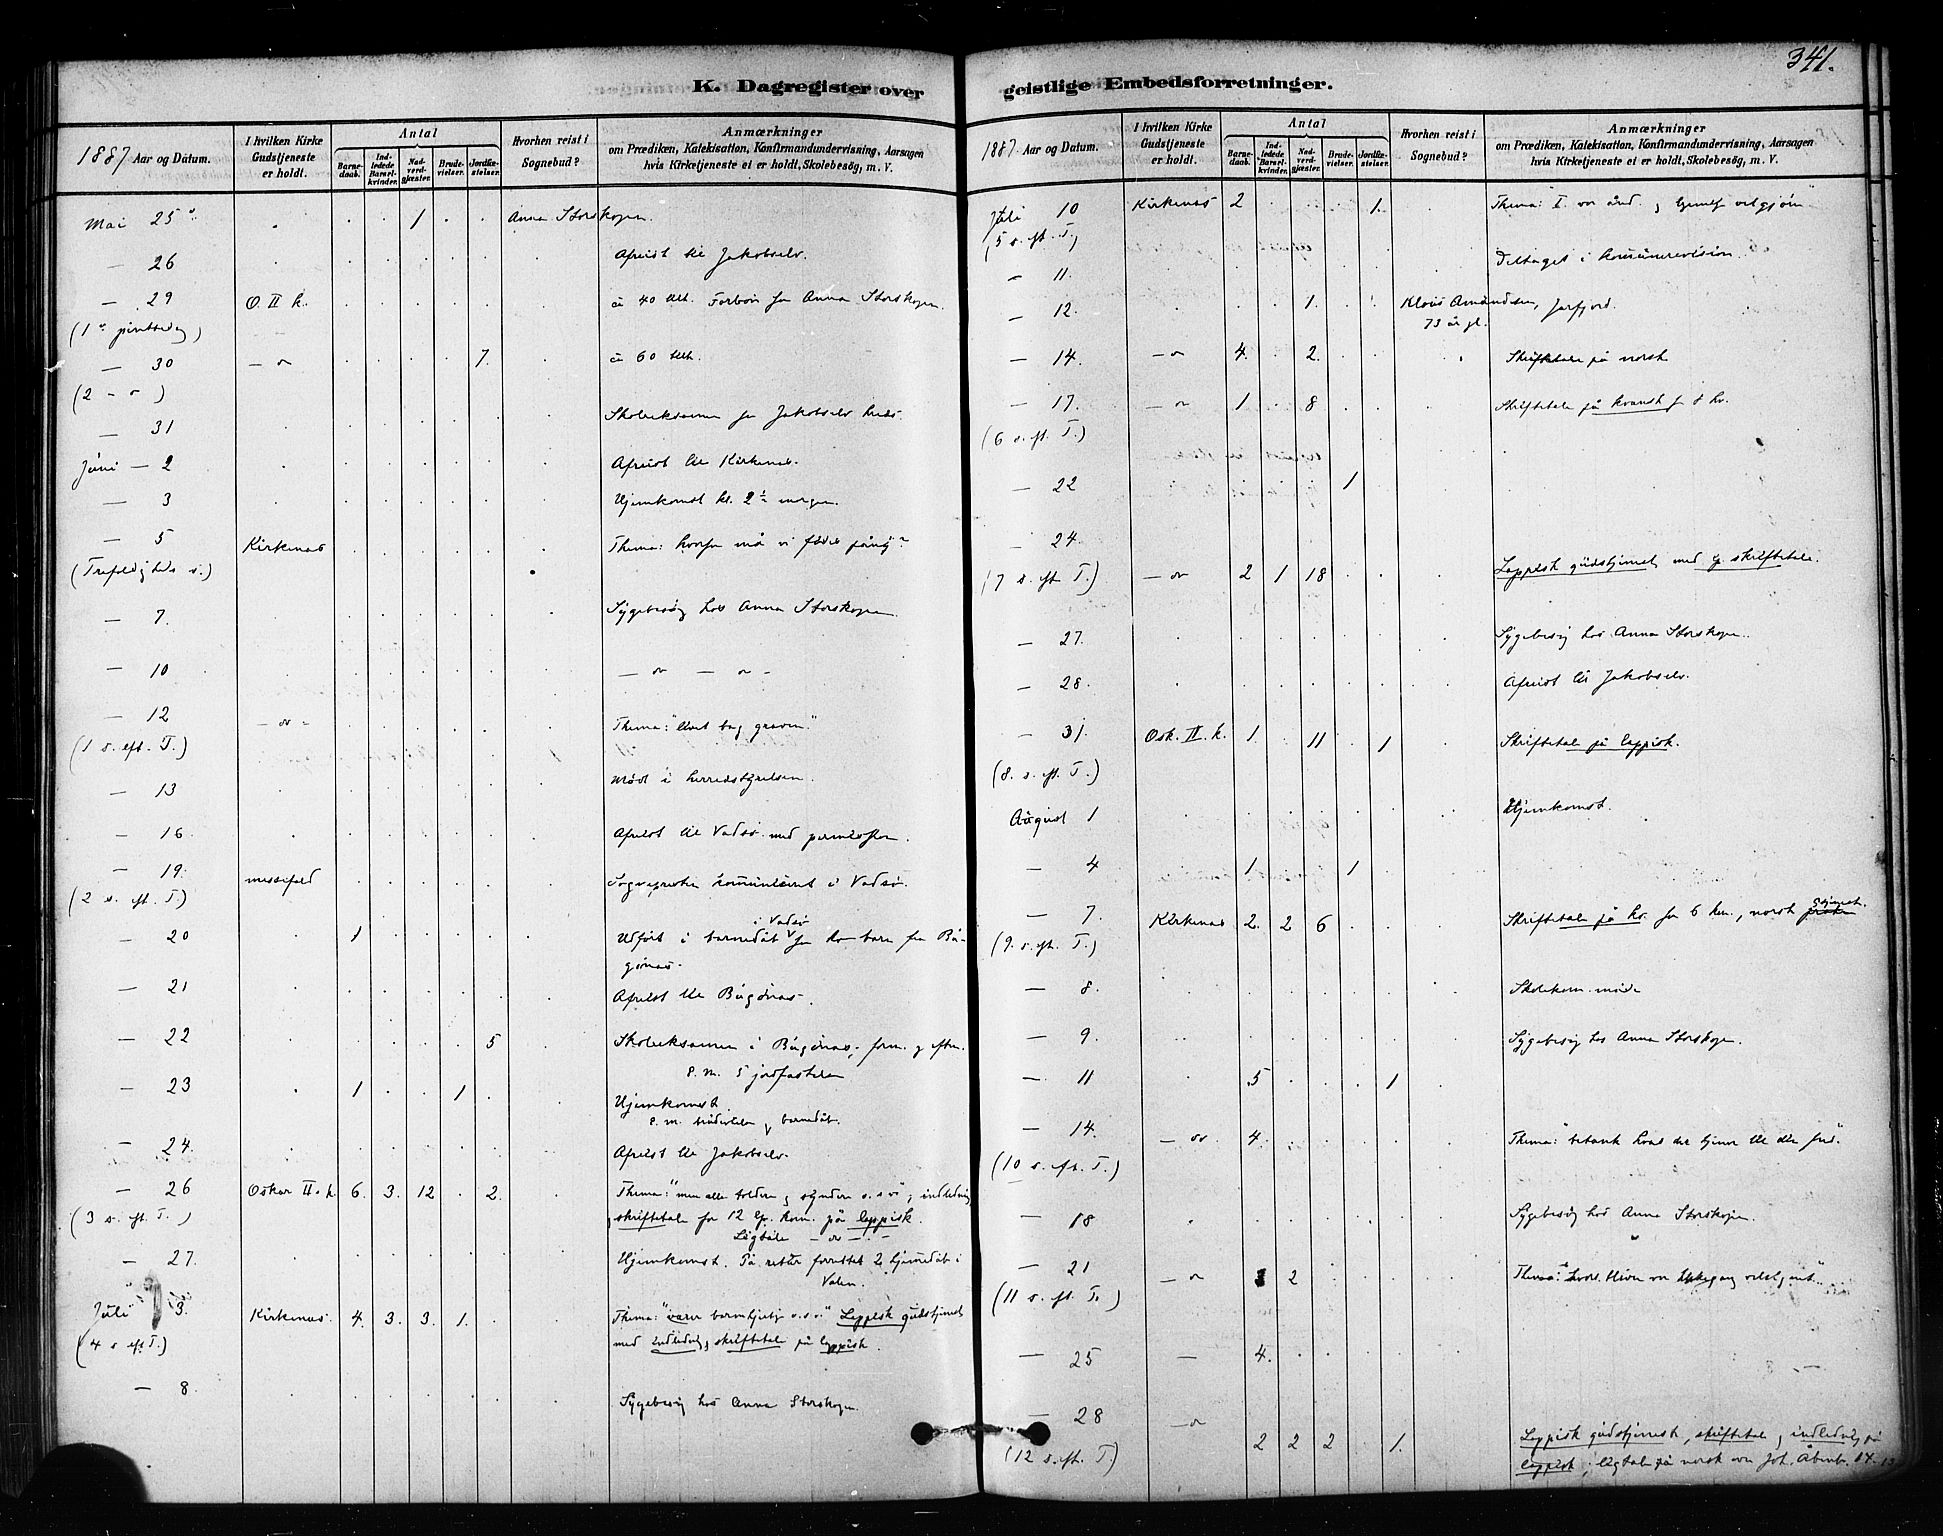 341.
K. Dagregister over geistlige Embedsforretninger.
1887 Aar og Datum.
I hvilken Kirke Gudstjeneste er holdt.
Antal
Barnedaab.
Indledede Barselkvinder.
Nadverdgjæster.
Brudevielser.
Jordfæstelser.
Hvorhen reist i Sognebud?
Anmærkninger
om Prædiken, Katekisation, Konfirmandundervisning, Aarsagen
hvis Kirketjeneste ei er holdt, Skolebesög, m. V.
Mai 25 . . . 1 . . Anna Storskogen.
— 26 Afreist til Jakobselv.
— 29 O. II k. 40 tilh. Forbön for Anna Storskogen.
(1ste pintsedag)
— 30 — " 7. 60 tilh.
(2 - " )
— 31 Skoleeksamen for Jakobselv kreds.
Juni — 2 Afreist til Kirkenes.
— 3 Hjemkomst kl. 2½ morgen.
— 5 Kirkenes Thema: hvorfor må vi födes påny?
(Trefoldigheds s.)
— 7. Sygebesög hos Anna Storskogen.
— 10 — " — " —
— 12 — " — Thema: "livet bag graven"
(1 s. eft. T.)
— 13 Möde i herredsstyrelsen.
— 16 Afreist til Vadsö med permission.
— 19. messefald Sognepresten kommuniceret i Vadsö.
(2 s. eft. T.)
— 20 1 Udfört i barnedåb i Vadsö for barn fra Bugönes.
— 21 Afreist til Bugönes.
— 22 5 Skoleeksamen i Bugönes, form. og efterm.
S. m. 5 jordfæstelser
— 23 1 1 Hjemkomst.
S. m. brudevielse og barnedåb.
— 24. Afreist til Jakobselv.
— 26 Oskar II. k. 6. 3. 12 . 2. Thema: "men alle toldere og syndere o.s.v." og indledning
(3 s. eft. T.) og skriftetale for 12 lp. kom. på lappisk.
Ligtale — " — " —
— 27. Hjemkomst. På retur forrettet 2 hjemmedåb i
Valen.
Juli 3. Kirkenes. 4. 3. 3. 1. Thema: "værer barmhjertige o.s.v." Lappisk gudstjeneste
(4 s eft. T.) med indledning, skriftetale på lappisk.
— 8. Sygebesög hos Anna Storskogen.
1887. Aar og Datum.
I hvilken Kirke Gudstjeneste er holdt.
Antal
Barnedaab.
Indledede Barselkvinder.
Nadverdgjæster.
Brudevielser.
Jordfæstelser.
Hvorhen reist i Sognebud?
Anmærkninger
om Prædiken, Katekisation, Konfirmandundervisning, Aarsagen
hvis Kirketjeneste ei er holdt, Skolebesög, m. V.
Juli 10 Kirkenes 2 1.
(5 s. eft. T.)
— 11. Deltaget i kommunerevision.
— 12. 1. Klaus Amundsen, Jarfjord.
73 år gl.
— 14. — " 4. 2. Skriftetale på norsk
— 17. — " 1. 8 Skriftetale på kvænsk for 8 kv.
(6 s. eft. T.)
— 22 1
— 24.
(7 s. eft. T.) — " 2 1 18 Lappisk gudstjeneste med lp. skriftetale.
— 27. Sygebesög hos Anna Storskogen.
— 28. Afreist til Jakobselv.
— 31. Osk. II. k. 1. 11 1 Skriftetale på lappisk.
(8. s. eft. T.)
August 1 Hjemkomst.
— 4 1 1
— 7. Kirkenes 2. 2 6 Skriftetale på kv. for 6 kvn., norsk
(9. s. eft. T.)
— 8. Skolekom. möde
— 9. Sygebesög hos Anna Storskogen.
— 11 5 1
— 14. — " 4. Thema: "betænk hvad der tjener til din fred".
(10 s. eft. T.)
— 18 Sygebesög hos Anna Storskogen.
— 21 — " 2
(11 s. eft. T.)
— 25 — 4.
— 28 — "
(12 s. eft. T.) 2 2 2 1. Lappisk gudstjeneste, skriftetale og indledning på
lappisk; ligtale på norsk over Joh.